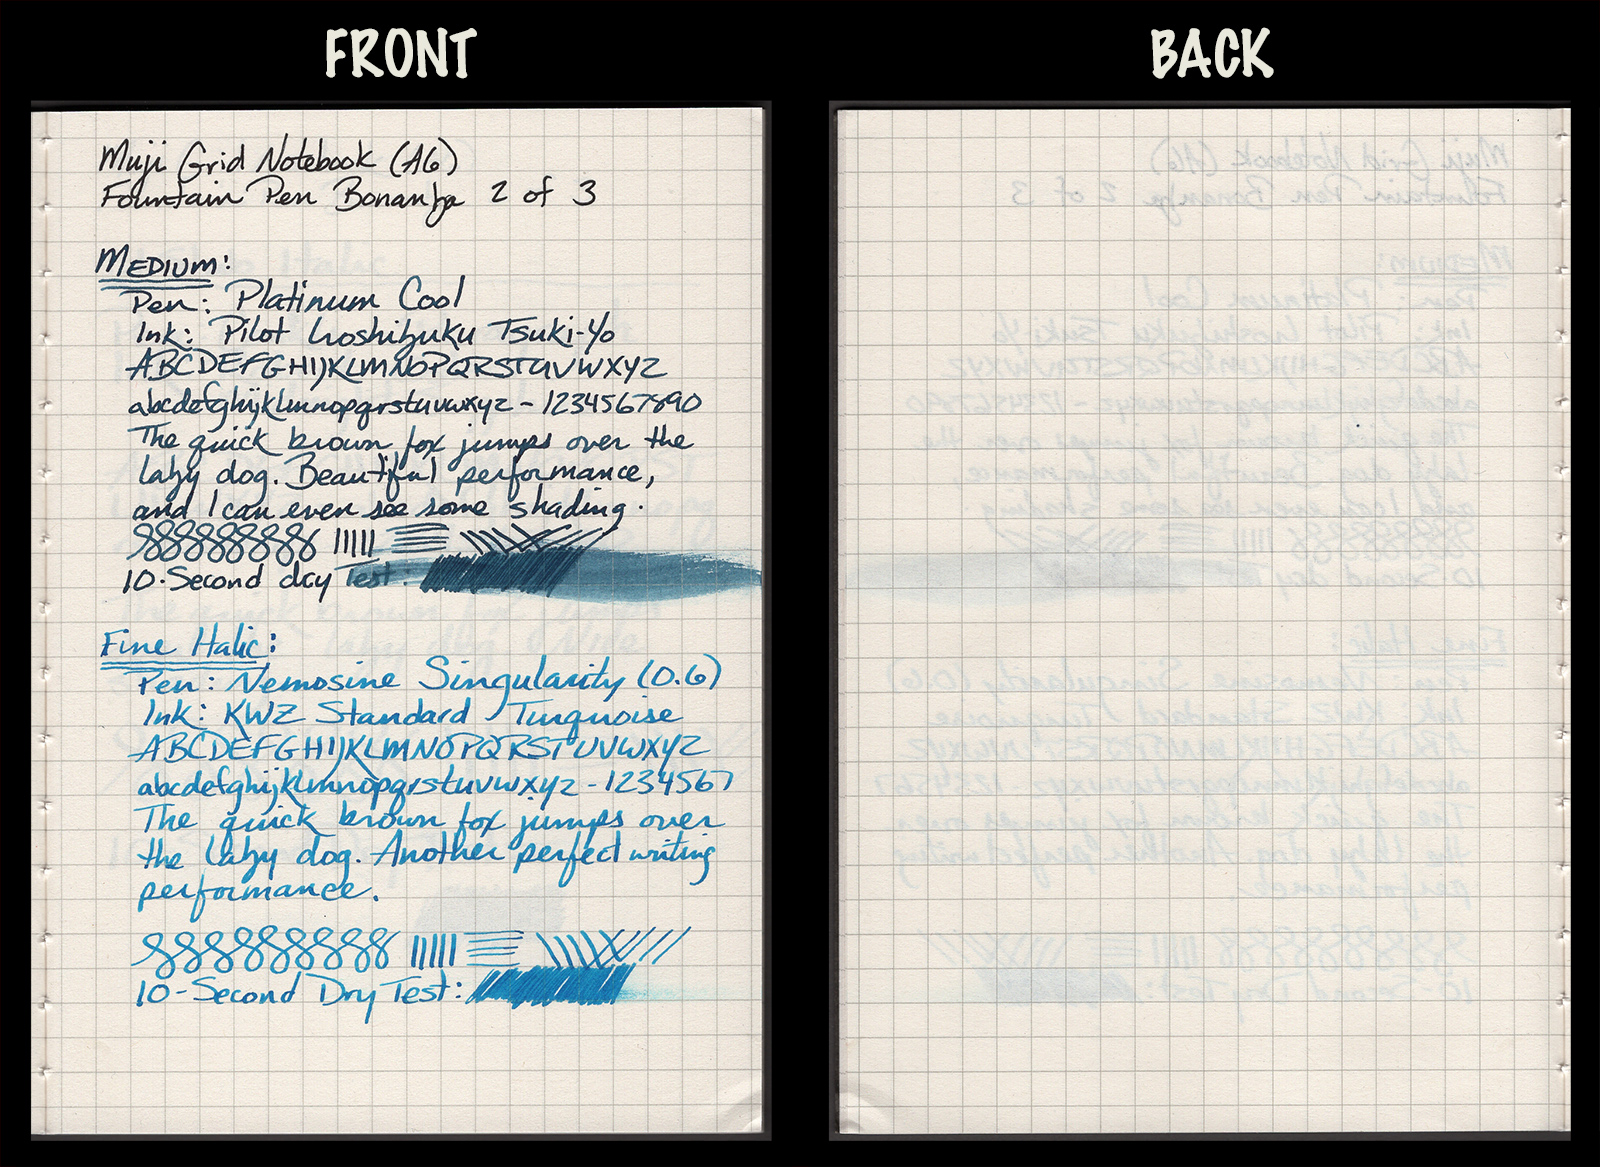 FRONT
Muji Grid Notebook (A6)
Fountain Pen Bonanza 2 of 3
MEDIUM:
Pen: Platinum Cool
Ink: Pilot Iroshizuku Tsuki-Yo
ABCDEFGHIJKLMNOPQRSTUVWXYZ
abcdefghijklmnopqrstuvwxyz - 1234567890
The quick brown fox jumps over the
lazy dog. Beautiful performance,
and I can even see some shading.
10-Second dry Test:
Fine Italic:
Pen: Nemosine Singularity (0.6)
Ink: KWZ Standard Turquoise
ABCDEFGHIJKLMNOPQRSTUVWXYZ
abcdefghijklmnopqrstuvwxyz - 1234567
The quick brown fox jumps over
the lazy dog. Another perfect writing
performance.
10-Second Dry Test:
BACK